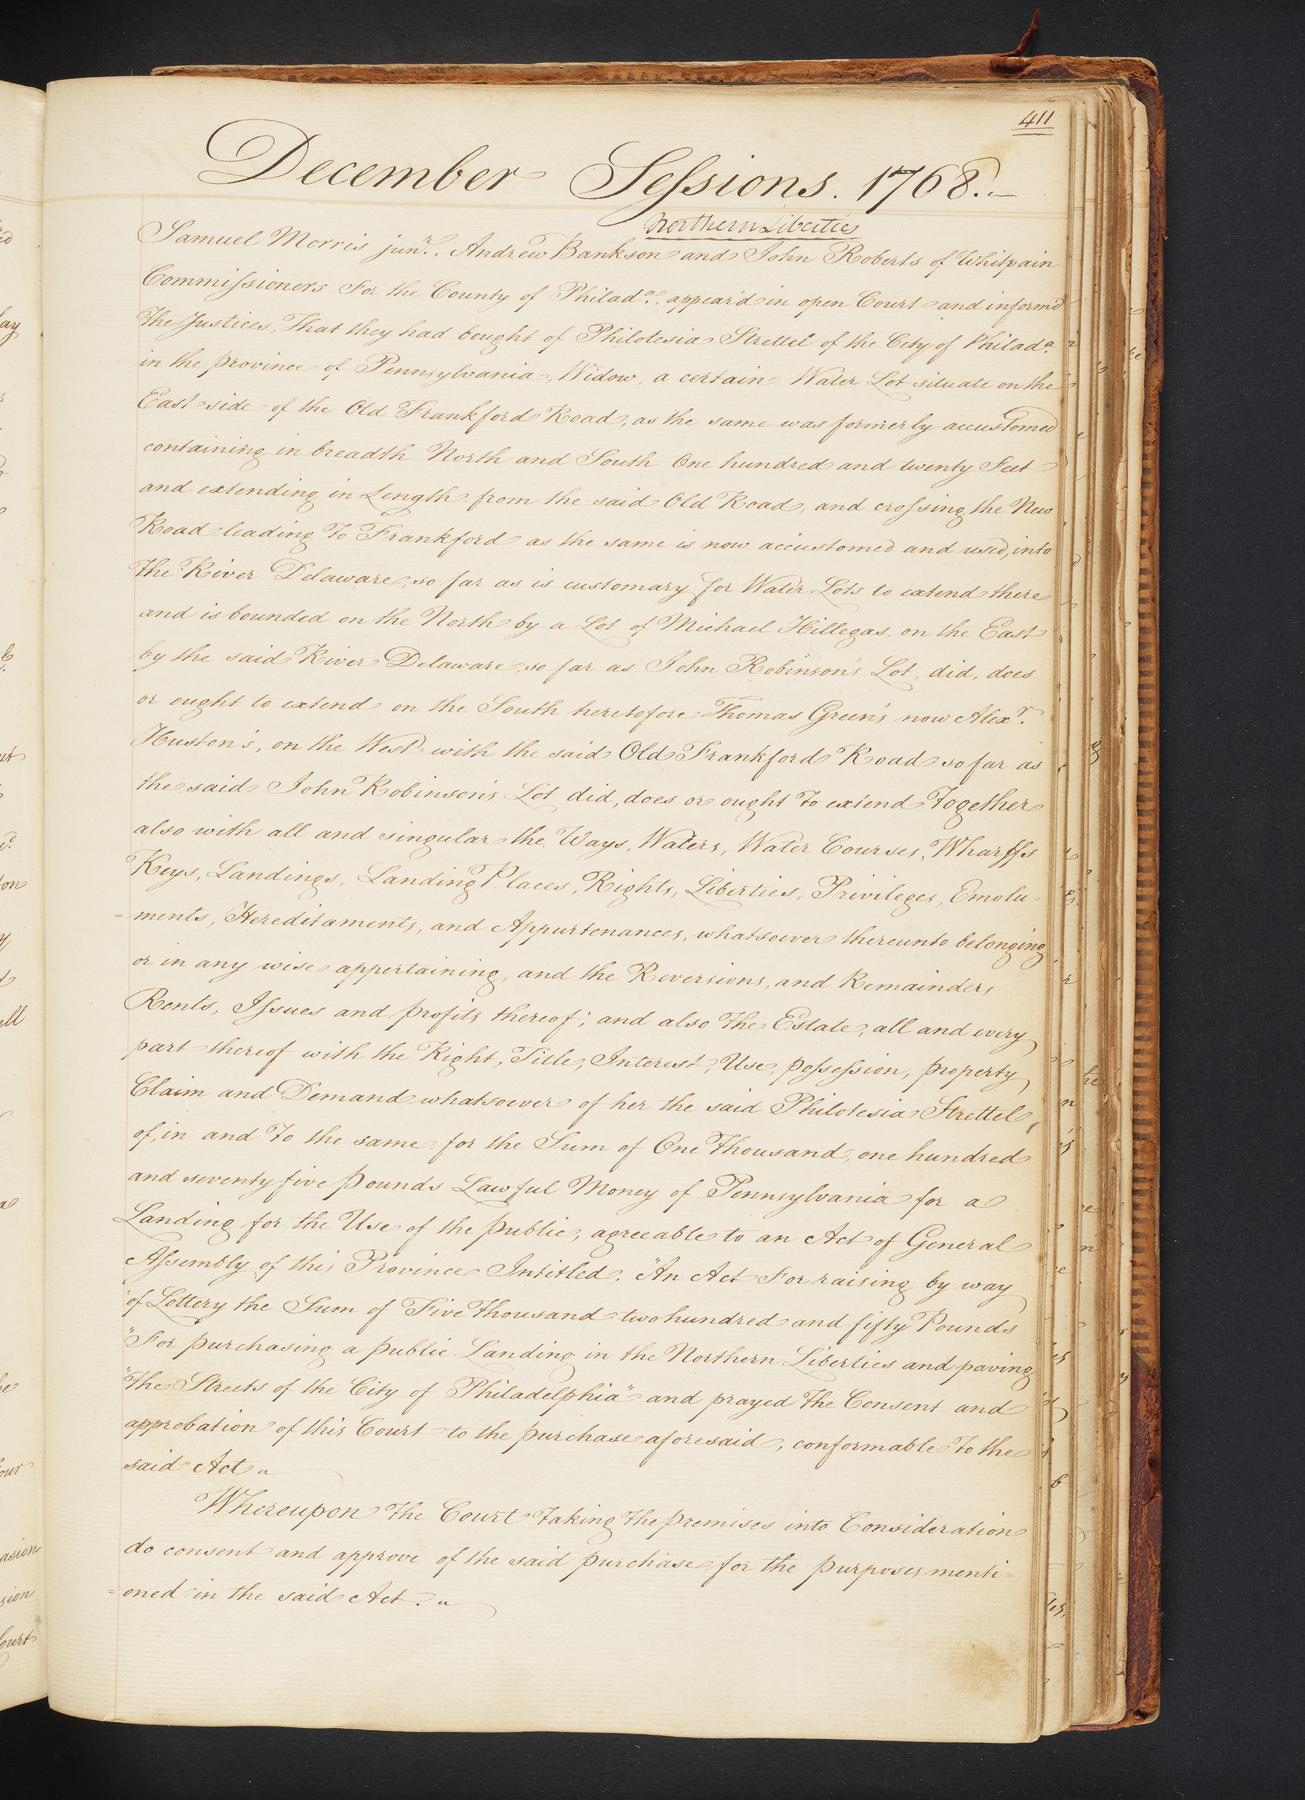 411
December Sessions. 1768.
Northern Liberties
Samuel Morris junr., Andrew Bankson and John Roberts of Whitpain
Commissioners For the County of Philada. appear'd in open Court and inform'd
The Justices, That they had bought of Philotesia Strettel of the City of Philada.
in the province of Pennsylvania, Widow, a certain Water Lot situate on the
East side of the Old Frankford Road, as the same was formerly accustomed
containing in breadth North and South One hundred and twenty Feet
and extending in Length from the said Old Road, and crossing the New
Road leading To Frankford as the same is now accustomed and used, into
the River Delaware, so far as is customary for Water Lots to extend there
and is bounded on the North by a Lot of Michael Hillegas, on the East
by the said River Delaware, so far as John Robinson's Lot, did, does
or ought to extend on the South heretofore Thomas Green's now Alexr.
Huston's, on the West with the said Old Frankford Road so far as
the said John Robinson's Lot did, does or ought To extend Together
also with all and singular the Ways, Waters, Water Courses, Wharffs
Keys, Landings, Landing Places, Rights, Liberties, Privileges, Emolu-
=ments, Hereditaments, and Appurtenances, whatsoever thereunto belonging
or in any wise appertaining, and the Reversions, and Remainders,
Rents, Issues and profits thereof; and also The Estate, all and every
part thereof with the Right, Title, Interest, Use, possession, property
Claim and Demand whatsoever of her the said Philotesia Strettel,
of, in and To the same for the Sum of One Thousand, one hundred
and seventy five pounds Lawful Money of Pennsylvania for a
Landing for the Use of the public, agreeable to an Act of General
Assembly of this Province Intitled, "An Act For raising by way
"of Lottery the Sum of Five Thousand two hundred and fifty Pounds
"For purchasing a public Landing in the Northern Liberties and paving
"The Streets of the City of Philadelphia" and prayed The Consent and
approbation of this Court to the purchase aforesaid, conformable To the
said Act.
Whereupon The Court Taking The premises into Consideration
do consent and approve of the said purchase for the purposes menti-
=oned in the said Act.